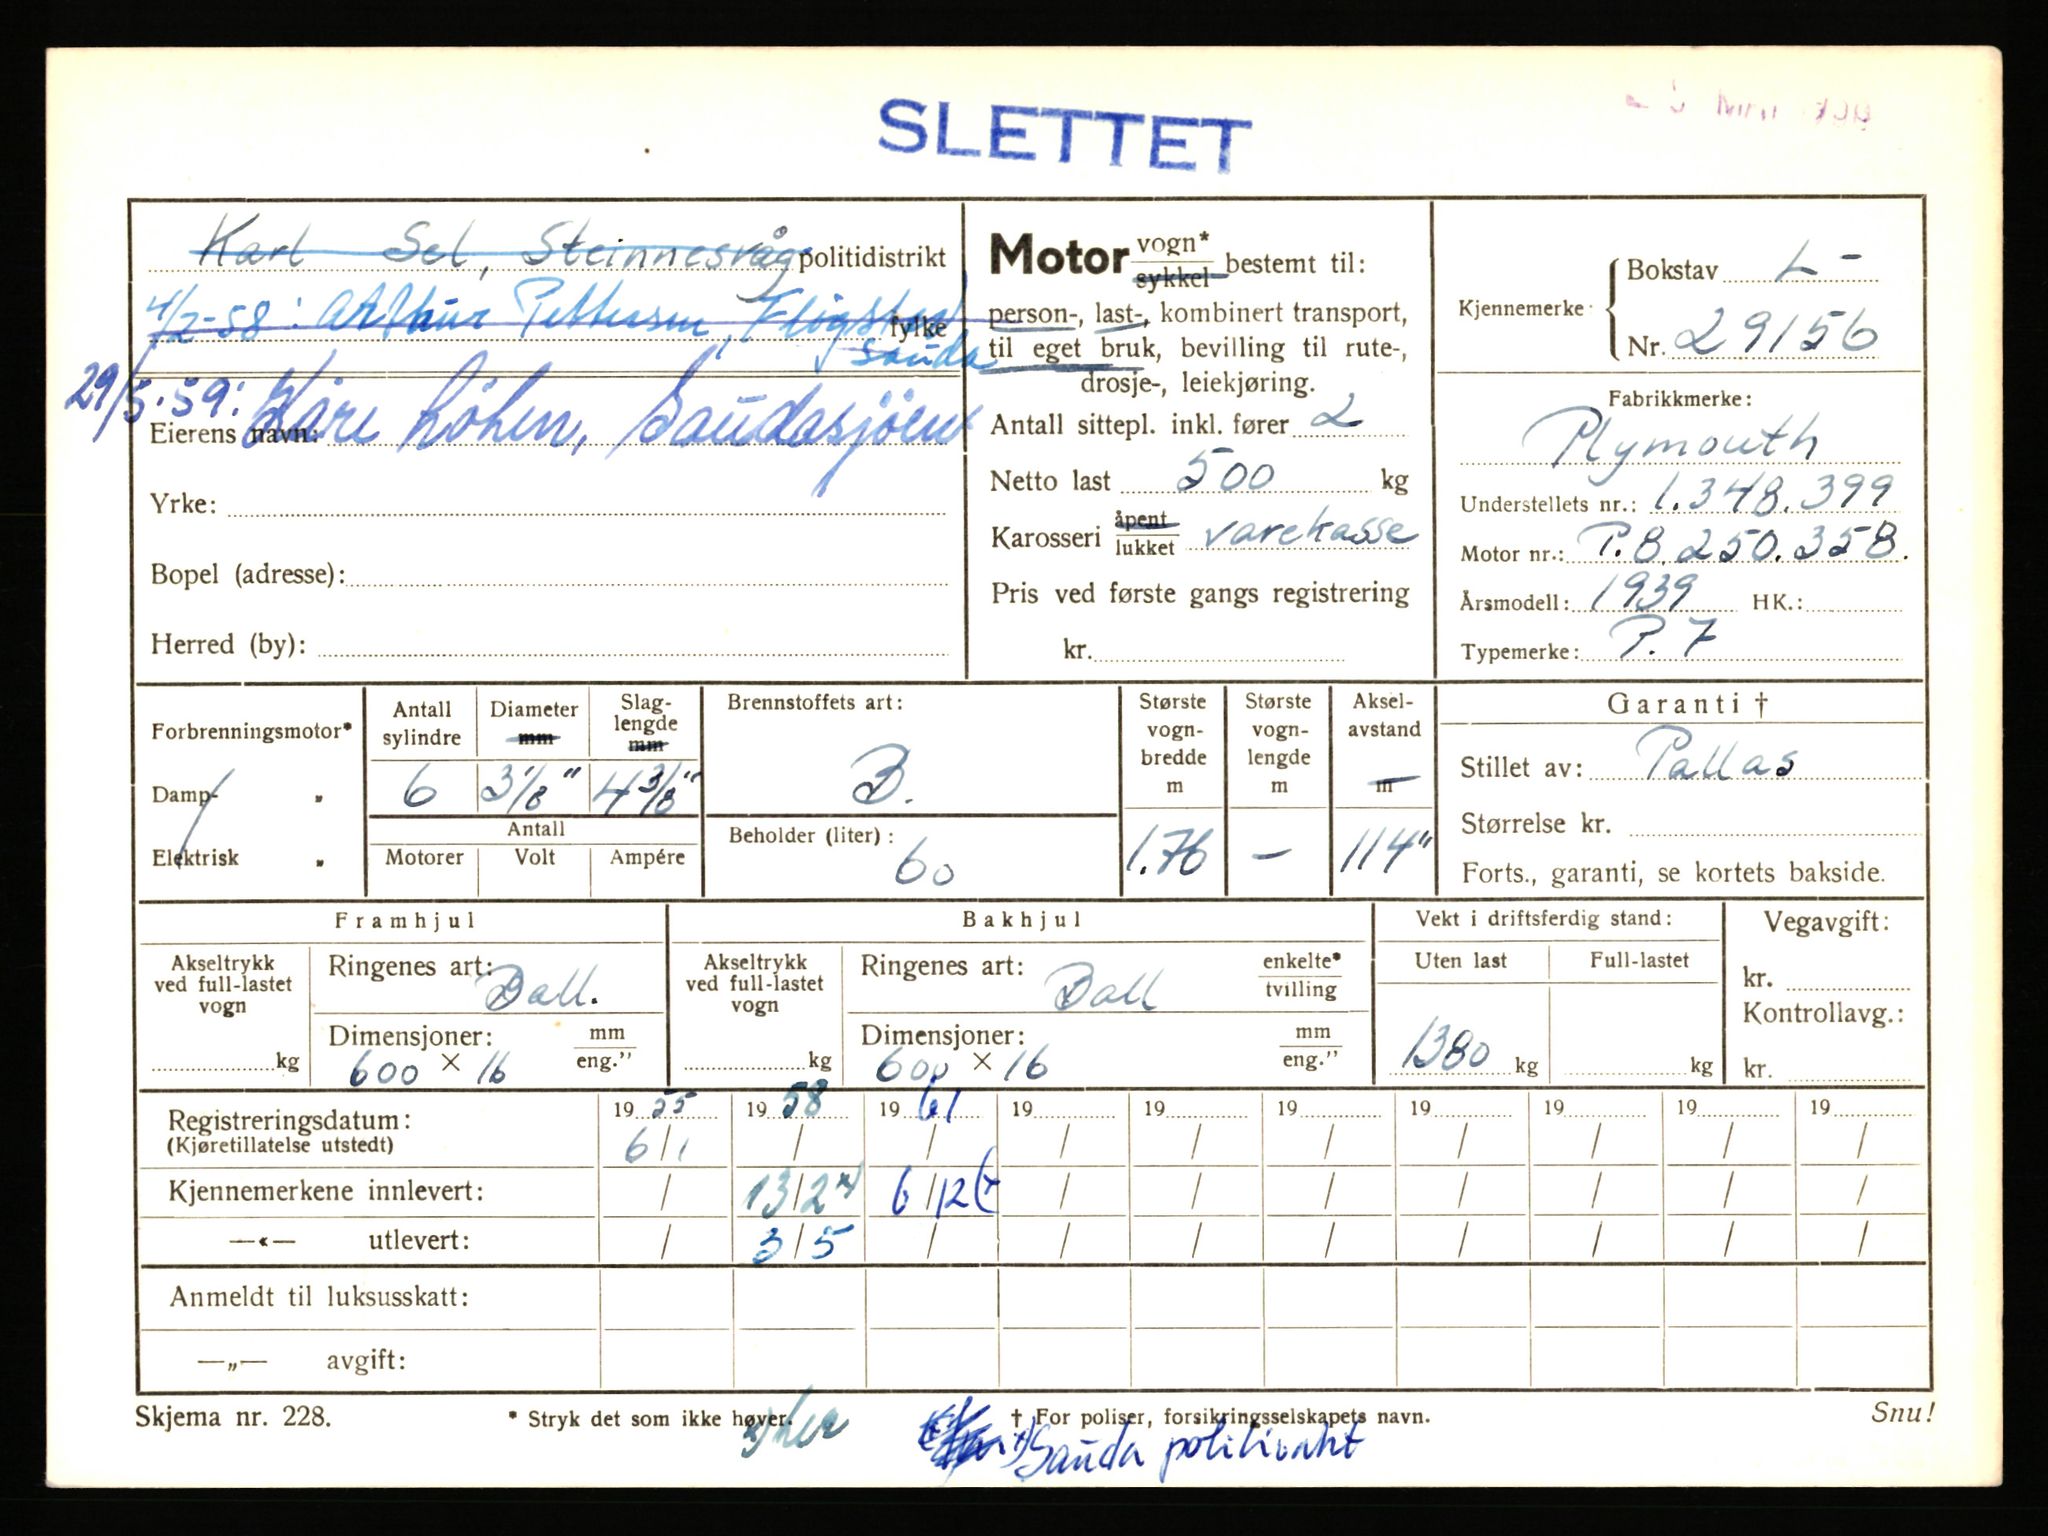 SLETTET
Karl Sel, Steinnesvåg politidistrikt
4/2-58: Arthur Pettersen, Fløgstad fylke
Sauda
29/5-59: Kåre Løhen, Saudasjøen
Eierens navn:
Yrke:
Bopel (adresse):
Herred (by):
Motor vogn* sykkel bestemt til:
person-, last-, kombinert transport,
til eget bruk, bevilling til rute-,
drosje-, leiekjøring.
Antall sittepl. inkl. fører 2
Netto last 500 kg
Karosseri åpent lukket varekasse
Pris ved første gangs registrering
kr.
Kjennemerke
Bokstav L-
Nr. 29156
Fabrikkmerke:
Plymouth
Understellets nr.: 1.348.399
Motor nr.: P.8.250.358.
Årsmodell: 1939 HK.:
Typemerke: P. 7
Forbrenningsmotor*
Damp- „
Elektrisk „
Antall sylindre
6
Diameter mm
3 1/8"
Slaglengde mm
4 3/8"
Antall
Motorer Volt Ampére
Brennstoffets art:
B.
Beholder (liter):
60
Største vognbredde m
1.76
Største vognlengde m
—
Akselavstand m
114"
Garanti †
Stillet av: Pallas
Størrelse kr.
Forts., garanti, se kortets bakside.
Framhjul
Akseltrykk ved full-lastet vogn
kg
Ringenes art: Ball.
Dimensjoner: mm eng."
600 × 16
Bakhjul
Akseltrykk ved full-lastet vogn
kg
Ringenes art: Ball enkelte* tvilling
Dimensjoner: mm eng."
600 × 16
Vekt i driftsferdig stand:
Uten last Full-lastet
1380 kg kg
Vegavgift:
kr.
Kontrollavg.:
kr.
Registreringsdatum: 19 55 19 58 19 61 19 19 19 19 19 19 19
(Kjøretillatelse utstedt) 6/1 / / / / / / / / /
Kjennemerkene innlevert: / 13/2 x) 6/12 (x / / / / / / /
—«— utlevert: / 3/5 / / / / / / / /
Anmeldt til luksusskatt:
—„— avgift:
Skjema nr. 228. * Stryk det som ikke høver. † For poliser, forsikringsselskapets navn. Snu!
x) her
x) Sauda politivakt